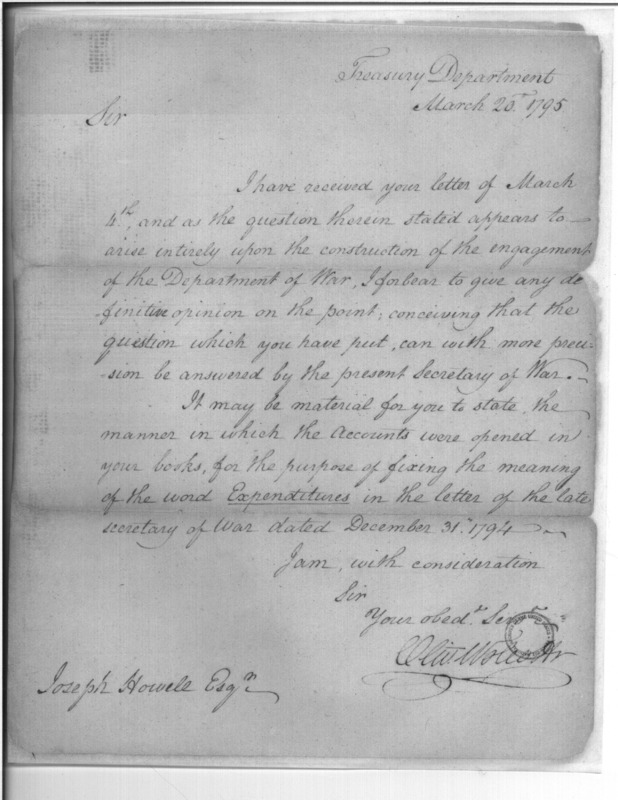 Treasury Department
March 25th 1795
Sir
I have received your letter of March
4th, and as the question therein stated appears to
arise intirely upon the construction of the engagement
of the Department of War, I forbear to give any de
finitive opinion on the point; conceiving that the
question which you have put, can with more preci-
-sion be answered by the present Secretary of War.
It may be material for you to state, the
manner in which the Accounts were opened in
your books, for the purpose of fixing the meaning
of the word Expenditures in the letter of the late
secretary of War dated December 31st 1794
I am, with consideration
Sir
Your obedt Servt
Oliv Wolcott Jr
Joseph Howell Esqr